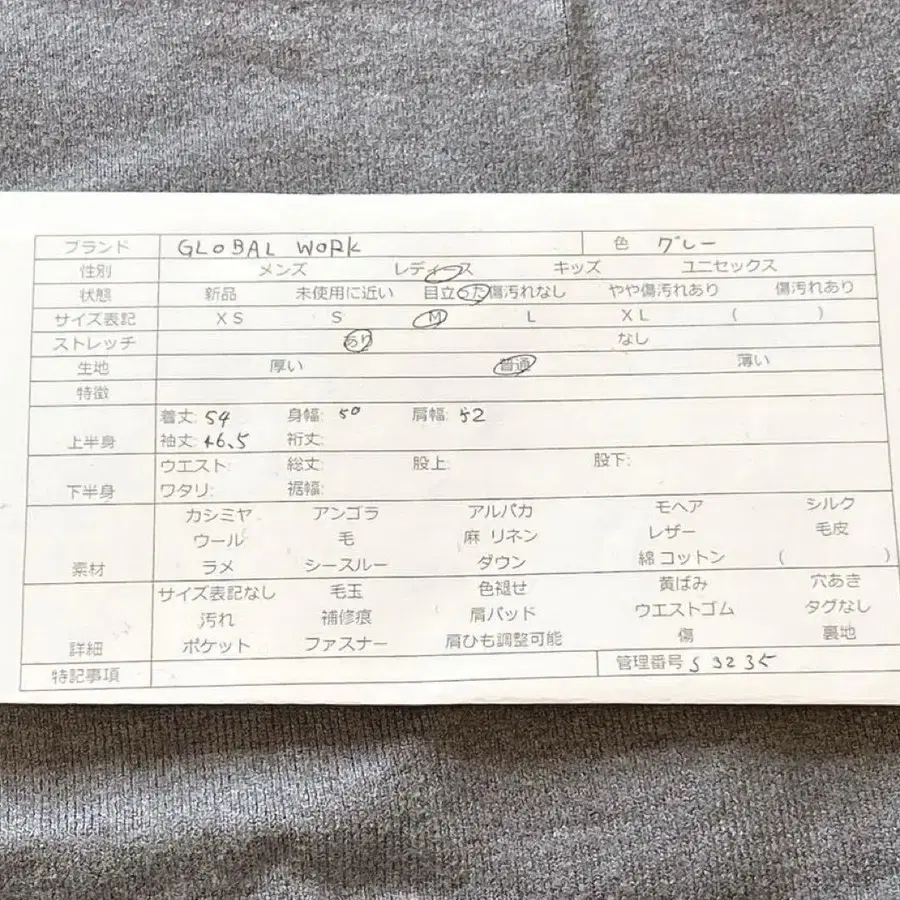 ブランド GLOBAL WORK 色 グレー
性別 メンズ レディース キッズ ユニセックス
状態 新品 未使用に近い 目立った傷汚れなし やや傷汚れあり 傷汚れあり
サイズ表記 XS S M L XL ( )
ストレッチ あり なし
生地 厚い 普通 薄い
特徴
上半身 着丈: 54 身幅: 50 肩幅: 52
袖丈: 46.5 裄丈:
下半身 ウエスト: 総丈: 股上: 股下:
ワタリ: 裾幅:
素材 カシミヤ アンゴラ アルパカ モヘア シルク
ウール 毛 麻 リネン レザー 毛皮
ラメ シースルー ダウン 綿 コットン ( )
詳細 サイズ表記なし 毛玉 色褪せ 黄ばみ 穴あき
汚れ 補修痕 肩パッド ウエストゴム タグなし
ポケット ファスナー 肩ひも調整可能 傷 裏地
特記事項 管理番号 S3235